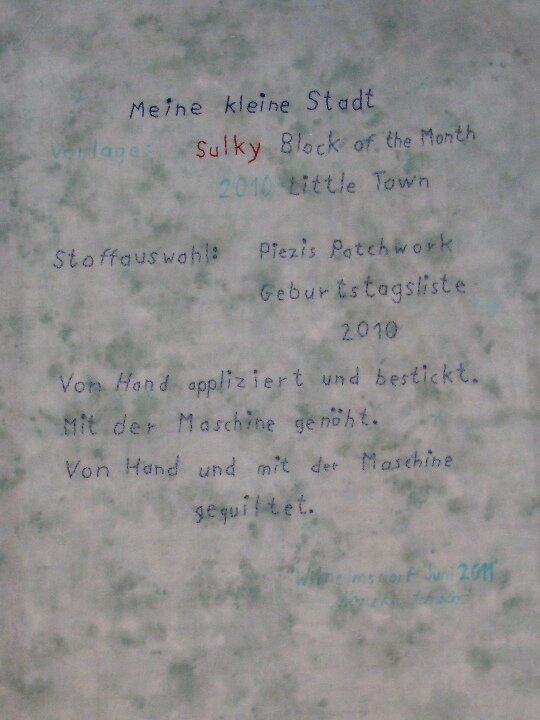 Meine kleine Stadt
Vorlage: Sulky Block of the Month
2010 Little Town
Stoffauswahl: Piezis Patchwork
Geburtstagsliste
2010
Von Hand appliziert und bestickt.
Mit der Maschine genäht.
Von Hand und mit der Maschine
gequiltet.
Wilhelmsdorf Juni 2011